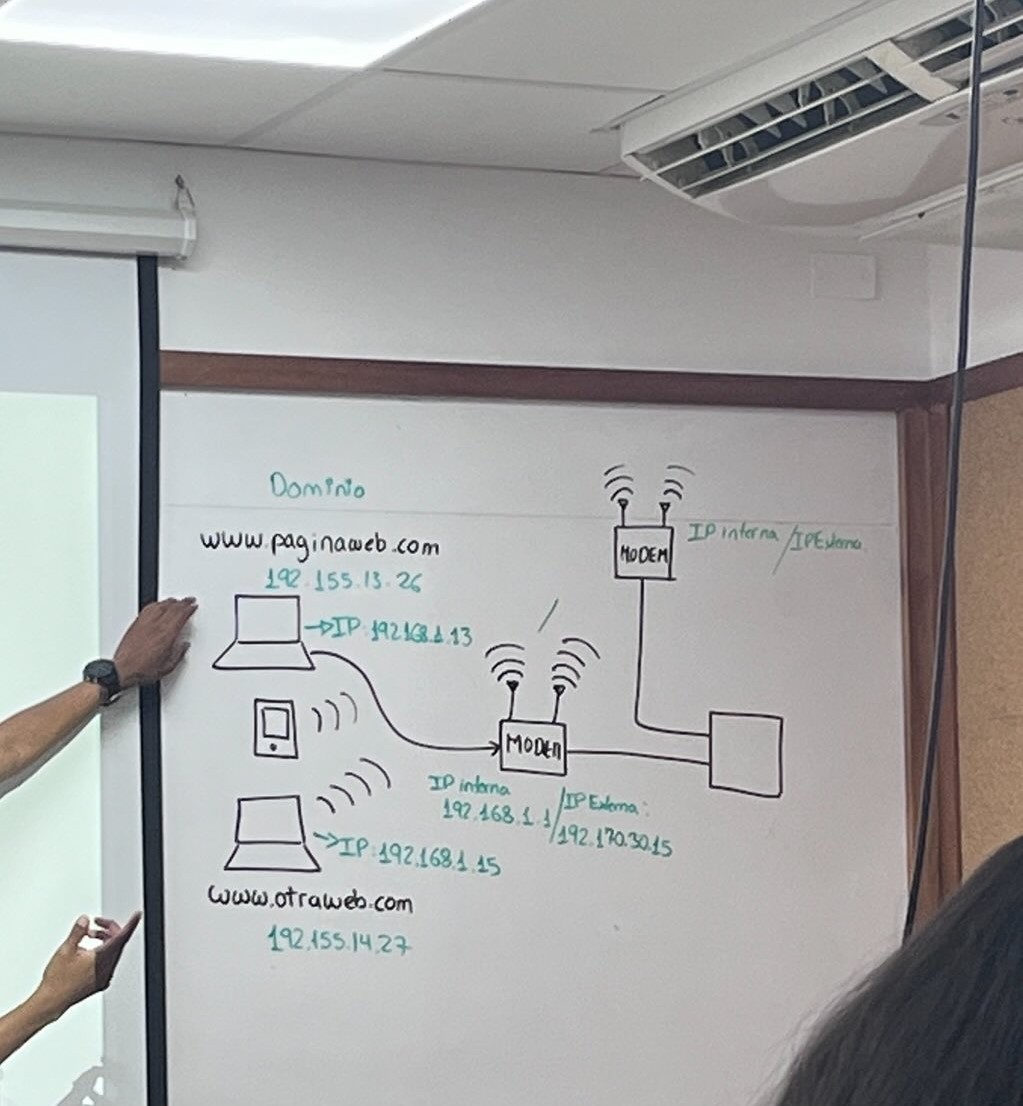 Dominio
www.paginaweb.com
192.155.13.26
→IP:192.168.1.13
MODEM
IP interna / IP Externa
MODEM
IP interna / IP Externa:
192.168.1.1 / 192.170.30.15
→IP:192.168.1.15
www.otraweb.com
192.155.14.27